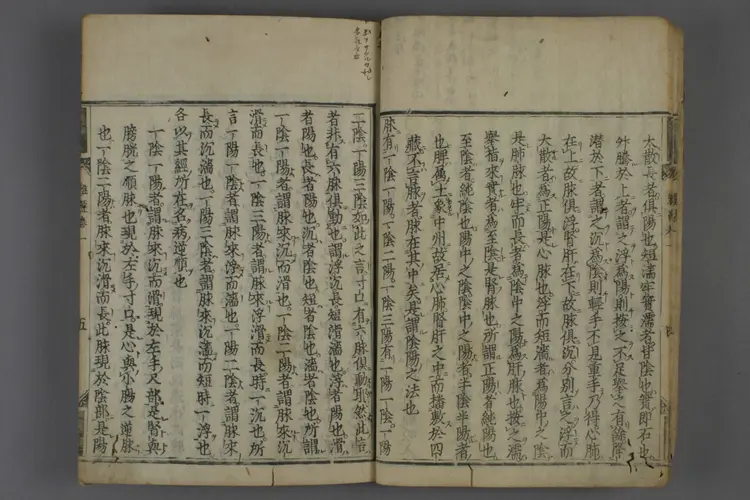 太散長者俱陽也短濇牢實濡者皆陰也實即石也
外臟於上者謂之浮爲陽則按之不足舉之有餘
潜於下者謂之沉爲陰則輕手不見重手乃得心肺
在上故脉俱浮腎肝在下故脉俱沉分別言之浮而
大散者爲正陽是心脉也浮而短濇者爲陽中之陰
是肺脉也牢而長者爲陰中之陽爲肝脉也按之濡
舉指來實者爲至陰是腎脉也所謂正陽者純陽也
至陰者純陰也陽中之陰陰中之陽者半陰半陽者
也脾屬土象中州故居心肺腎肝之中而播敷於四
臟不言脉者脉在其中矣是謂陰陽之法也
脉有一陰一陽一陰二陽一陰三陽有一陽一陰一陽
二陰一陽三陰如此之言寸口有六脉俱動耶然此言
者非有六脉俱動也謂浮沉長短滑濇也浮者陽也滑
者陽也長者陽也沉者陰也短者陰也濇者陰也所謂
一陰一陽者謂脉來沉而滑也一陰二陽者謂脉來沉
滑而長也一陰三陽者謂脉來浮滑而長時一沉也所
言一陽一陰者謂脉來浮而濇也一陽二陰者謂脉來
長而沉濇也一陽三陰者謂脉來沉濇而短時一浮也
各以其經所在名病逆順也
一陰一陽者謂脉來沉而滑現於左手尺部是腎與
膀胱之順脉也現於左手寸口是心與小腸之逆脉
也一陰二陽者脉來沉滑而長此脉現於陰部是陽
五